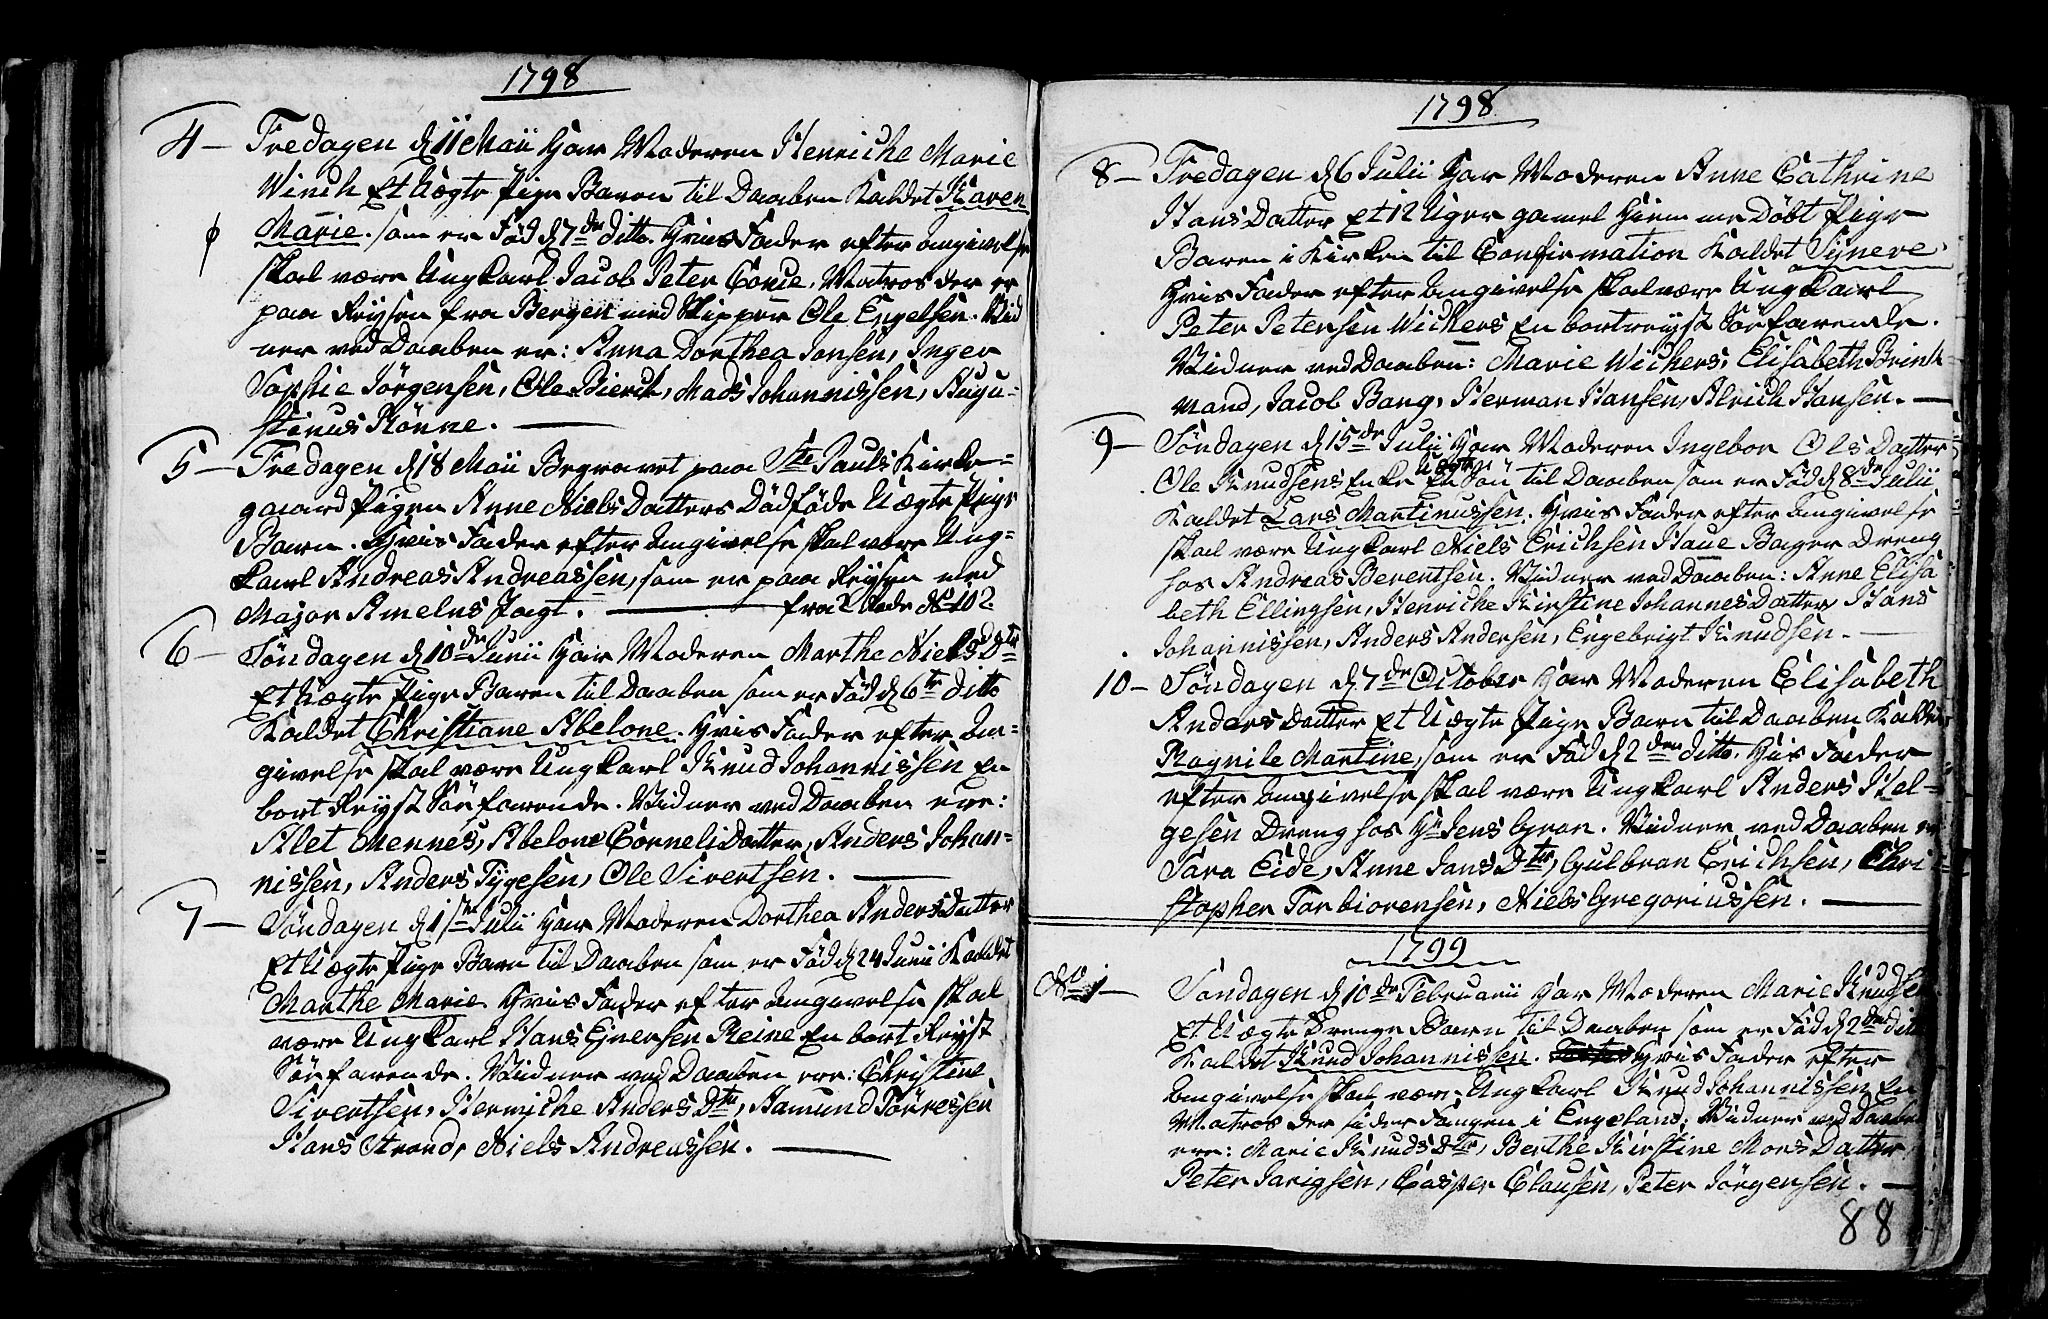 1798
4 — Fredagen d 11 Maii har Moderen Henriche Marie
Winch Et Uægte Pige Barn til Daaben Kaldet Karen
Marie. som er Fød d 7de ditto. Hvis Fader efter angivelse
skal være Ungkarl Jacob Peter Matros der er
paa Reysen fra Bergen med Skipper Ole Engelsen. Vid
ner ved Daaben er: Anna Dorthea Jansen, Inger
Sophie Jørgensen, Ole Bierck, Mads Johannissen, Augu-
stinus Rønne. —
5 — Fredagen d 18 Maii Begravet paa Ste Pauls Kirke-
gaard Pigen Anne Niels Datters Dødføde Uægte Pige
Barn. Hvis Fader efter Angivelse skal være Ung-
karl Andreas Andreassen, som er paa Reysen med
Major Amelns Jagt. — fra Rode No 10?
6 — Søndagen d 10de Junii har Moderen Marthe Niels Dtr
Et Uægte Pige Barn til Daaben som er Fød d 6te ditto
Kaldet Christiane Abelone. Hvis Fader efter An-
givelse skal være Ungkarl Knud Johannissen En
bort Reyst Søefarende. Vidner ved Daaben ere:
Alet Mennes, Abelone Corneli Datter, Anders Johan-
nissen, Anders Tygesen, Ole Sivertsen. —
7 — Søndagen d 1ste Julii har Moderen Dorthea Anders Datter
Et Uægte Pige Barn til Daaben som er Fød d 24 Junii Kaldet
Marthe Marie. Hvis Fader efter Angivelse skal
være Ungkarl Hans Ejnersen Reine En bort Reyst
Søefarende. Vidner ved Daaben ere: Christine
Sivertsen, Hermiche Anders Dtr, Aamund Tørresen
Hans Strand, Niels Andreassen. —
1798
8 — Fredagen d 6 Julii har Moderen Anne Cathrine
Hans Datter Et 12 Uger gamel hiemme Døbt Pige
Barn i Kirken til Confirmation Kaldet Synneve
Hvis Fader efter Angivelse skal være Ungkarl
Peter Petersen Wickers En bortreyst Søefarende.
Vidner ved Daaben: Marie Wickers, Elisabeth Brink
mand, Jacob Bang, Herman Hansen, Alrich Hansen. —
9 — Søndagen d 15de Julii har Moderen Ingebor Ols Datter
Ole Knudsens Enke En Uægte Søn til Daaben som er Fød d 8de Julii
Kaldet Lars Martinussen. Hvis Fader efter Angivelse
skal være Ungkarl Niels Erichsen Haue Bager Dreng
hos Andreas Berentsen. Vidner ved Daaben: Anne Elisa
beth Ellingsen, Henriche Kirstine Johannes Datter, Hans
Johannissen, Anders Andersen, Engebrigt Knudsen. —
10 — Søndagen d 7de October har Moderen Elisabeth
Anders Datter Et Uægte Pige Barn til Daaben Kaldet
Ragnile Martine, som er Fød d 2den ditto, Hvis Fader
efter Angivelse skal være Ungkarl Anders Hel-
gesen Dreng hos Hr Jens Gran. Vidner ved Daaben er
Sara Eide, Anne Jans Dtr, Gulbran Erichsen, Chri
stopher Torbiørensen, Niels Gregoriussen. —
1799
No 1 — Søndagen d 10de Februarii har Moderen Marie Knudsen
Et Uægte Drenge Barn til Daaben som er Fød d 2den ditto
Kaldet Knud Johannissen. Hvis Fader efter
Angivelse skal være Ungkarl Knud Johannissen En
Matros der sider Fangen i Engeland. Vidner ved Daaben
ere: Marie Knuds Dtr, Berthe Kirstine Mons Datter
Peter Jarigsen, Casper Clausen, Peter Jørgensen. —
88